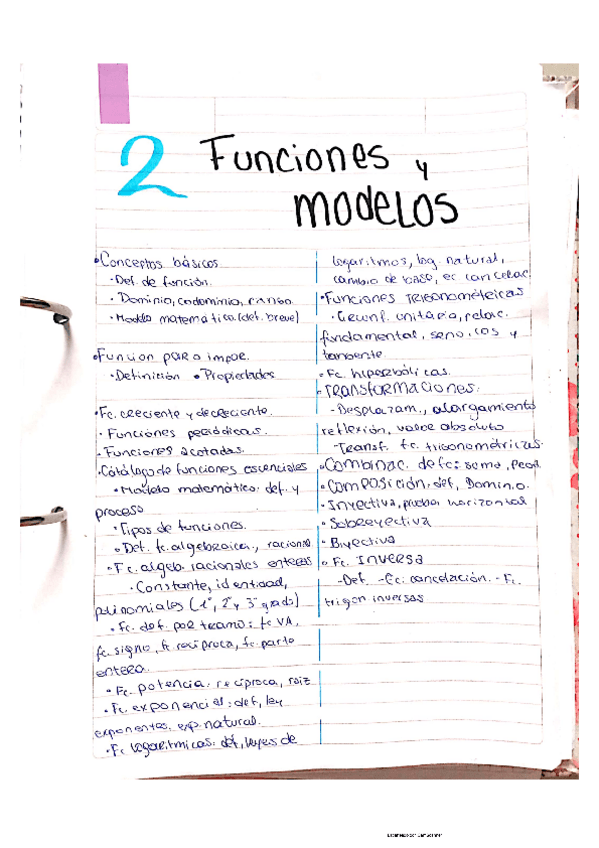 2 Funciones y
modelos
•Conceptos básicos
•Def. de función.
•Dominio, codominio, rango
•Modelo matemática (def. breve)
•Funcion par o impar.
•Definición •Propiedades
•Fc. creciente y decreciente.
•Funciones periódicas.
•Funciones acotadas.
•Catálogo de funciones esenciales
•Modelo matemático: def. y
proceso
•Tipos de funciones.
•Def. fc. algebraica, racional
•Fc. algeb. racionales enteras
•Constante, identidad,
polinomiales (1º, 2º y 3º grado)
•Fc. def. por tramo: fc VA,
fc. signo, fc recíproca, fc. parte
entera.
•Fc. potencia: recíproca, raiz
•Fc. exponencial: def, ley
exponentes, exp. natural.
•Fc logaritmicas: def, leyes de
logaritmos, log. natural,
cambio de base, ec cancelac.
•Funciones trigonométricas
•Circunf. unitaria, relac.
fundamental, seno, cos y
tangente
•Fc. hiperbólicas.
•Transformaciones.
-Desplazam., alargamiento
reflexión, valor absoluto
-Transf. fc. trigonométricas.
•Combinac. de fc: suma, Prod.
•Composición: def, Dominio.
•Inyectiva, prueba horizontal
•Sobreyectiva
•Biyectiva
•Fc. Inversa
-Def. -Ec. cancelación. -Fc.
trigon inversas